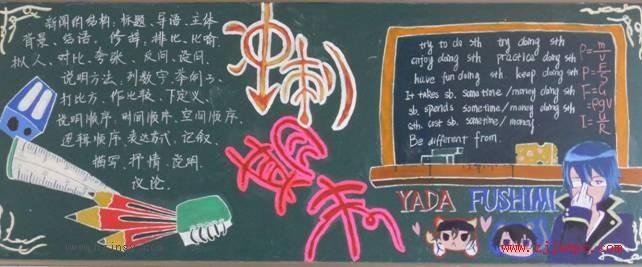 新闻的结构:标题、导语、主体
背景、结语。修辞:排比、比喻
拟人、对比、夸张、反问、设问、
说明方法:列数字、举例子、
打比方、作比较、下定义、
说明顺序、时间顺序、空间顺序、
逻辑顺序、表达方式、记叙、
描写、抒情、说明
议论、
冲刺
try to do sth try doing sth
enjoy doing sth practice doing sth
have fun doing sth. keep doing sth
It takes sb. some time / money doing sth
sb. spends sometime / money doing sth
sth. cost sb. some time / money
Be different from
P=m/V
P=F/S
F=G
=ρgV
I=U/R
YADA FUSHIMI